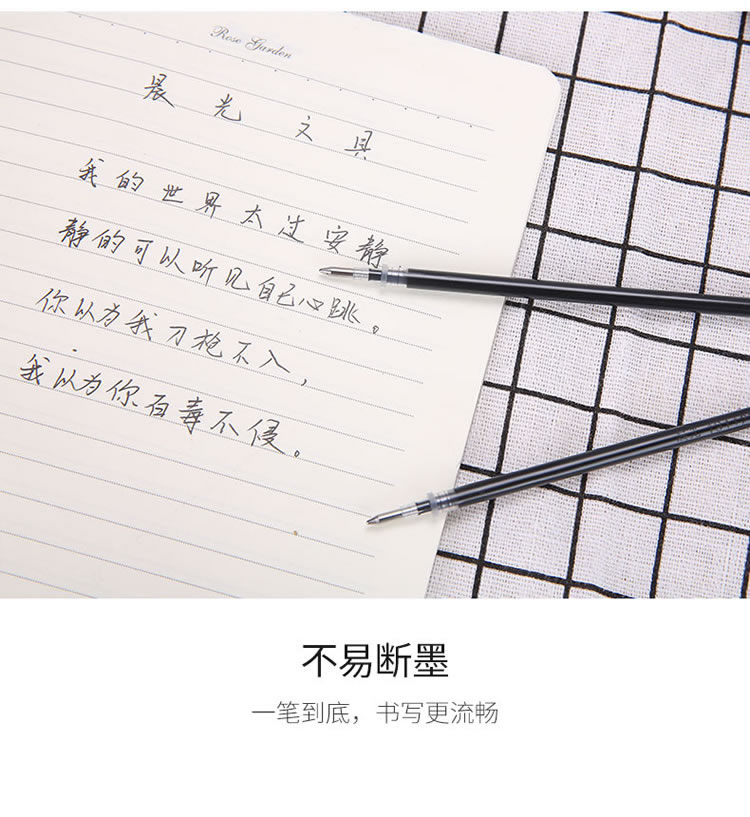 Rose Garden
晨光文具
我的世界太过安静
静的可以听见自己心跳。
你以为我刀枪不入，
我以为你百毒不侵。
不易断墨
一笔到底，书写更流畅